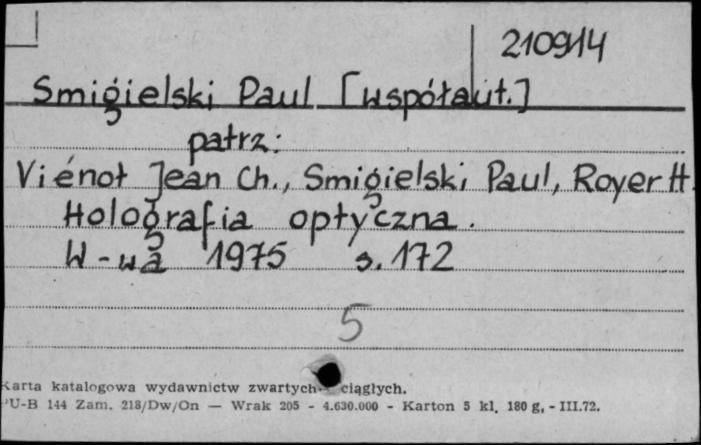 210914
Smigielski Paul [współaut.]
patrz:
Viénot Jean Ch., Smigielski Paul, Royer H.
Holografia optyczna.
W-wa 1975 s. 172
5
Karta katalogowa wydawnictw zwartych ciągłych.
PU-B 144 Zam. 218/Dw/On — Wrak 205 - 4.630.000 - Karton 5 kl. 180 g, - III.72.